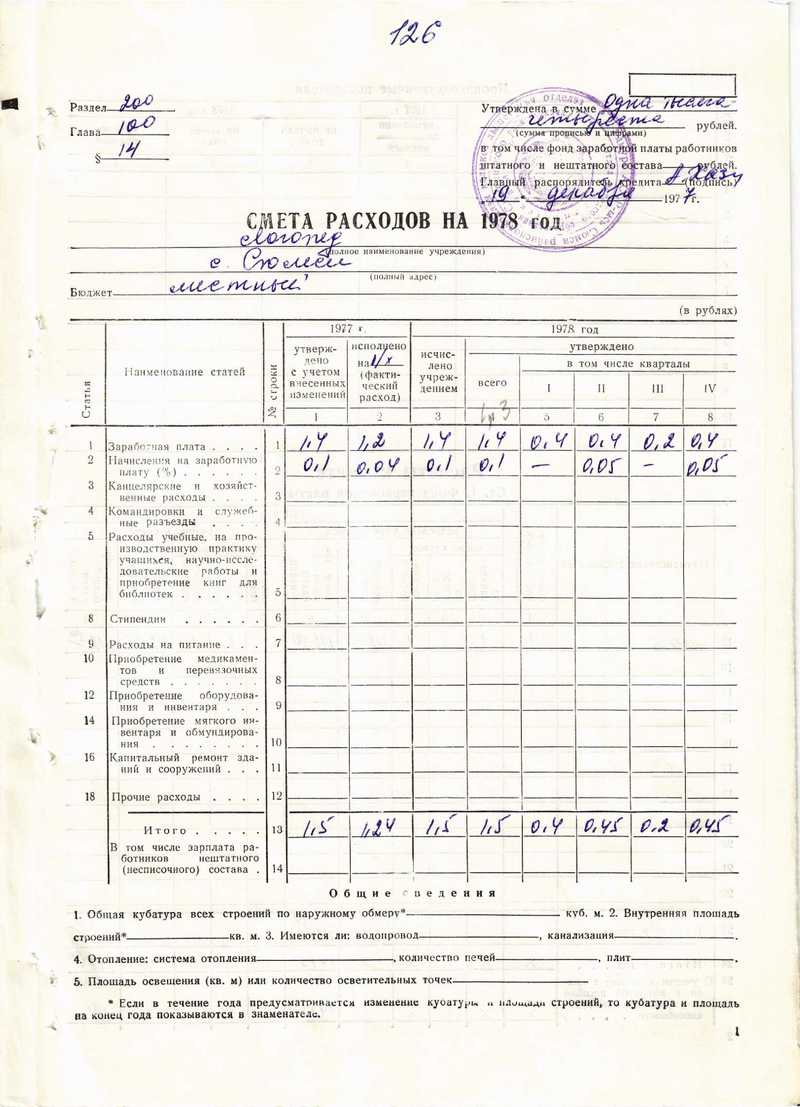 126
Раздел 200
Глава 100
§ 14
Утверждена в сумме Одна тысяча
четыреста рублей.
(сумма прописью и цифрами)
в том числе фонд заработной платы работников
штатного и нештатного состава рублей.
Главный распорядитель кредита (подпись)
19 декабря 1977 г.
СМЕТА РАСХОДОВ НА 1978 год
Логопед
(полное наименование учреждения)
с.
(полный адрес)
Бюджет местный
(в рублях)
Статья Наименование статей № строки 1977 г. 1978 год
утверждено с учетом внесенных изменений исполнено на 1/X (фактический расход) исчислено учреждением утверждено
всего в том числе кварталы
I II III IV
1 2 3 5 6 7 8
1 Заработная плата . . . . 1 1,4 1,2 1,4 1,4 0,4 0,4 0,2 0,4
2 Начисления на заработную
плату (%) . . . . . . 2 0,1 0,04 0,1 0,1 — 0,05 — 0,05
3 Канцелярские и хозяйст-
венные расходы . . . . 3
4 Командировки и служеб-
ные разъезды . . . . 4
5 Расходы учебные, на про-
изводственную практику
учащихся, научно-иссле-
довательские работы и
приобретение книг для
библиотек . . . . . . 5
8 Стипендии . . . . . . 6
9 Расходы на питание . . . 7
10 Приобретение медикамен-
тов и перевязочных
средств . . . . . . . 8
12 Приобретение оборудова-
ния и инвентаря . . . 9
14 Приобретение мягкого ин-
вентаря и обмундирова-
ния . . . . . . . . 10
16 Капитальный ремонт зда-
ний и сооружений . . . 11
18 Прочие расходы . . . . 12
Итого . . . . . 13 1,5 1,24 1,5 1,5 0,4 0,45 0,2 0,45
В том числе зарплата ра-
ботников нештатного
(несписочного) состава . 14
Общие сведения
1. Общая кубатура всех строений по наружному обмеру* куб. м. 2. Внутренняя площадь
строений* кв. м. 3. Имеются ли: водопровод , канализация .
4. Отопление: система отопления , количество печей , плит .
5. Площадь освещения (кв. м) или количество осветительных точек
* Если в течение года предусматривается изменение кубатуры и площади строений, то кубатура и площадь
на конец года показываются в знаменателе.
1